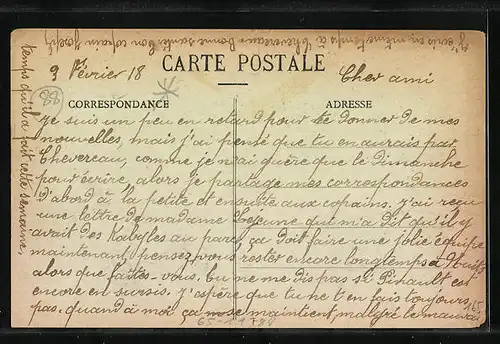 9 Février 18
CARTE POSTALE
Cher ami
88
CORRESPONDANCE
ADRESSE
Je suis un peu en retard pour te donner de mes
nouvelles, mais j'ai pensé que tu en aurais par
Chevereau, comme je n'ai guère que le dimanche
pour écrire, alors je partage mes correspondances
d'abord à la petite et ensuite aux copains. J'ai reçu
une lettre de madame Lejeune qui m'a dit qu'il y
avait des Kabyles au parc, ça doit faire une jolie équipe
maintenant, pensez-vous rester encore longtemps à
alors que faites-vous. Tu ne me dis pas si Pinault est
encore en sursis. J'espère que tu ne t'en fais toujours
pas. quand à moi ça se maintient, malgré le mauvais
temps qu'il a fait cette semaine,
J'écris en même temps à Chevereau. Bonne santé. Ton copain Joseph